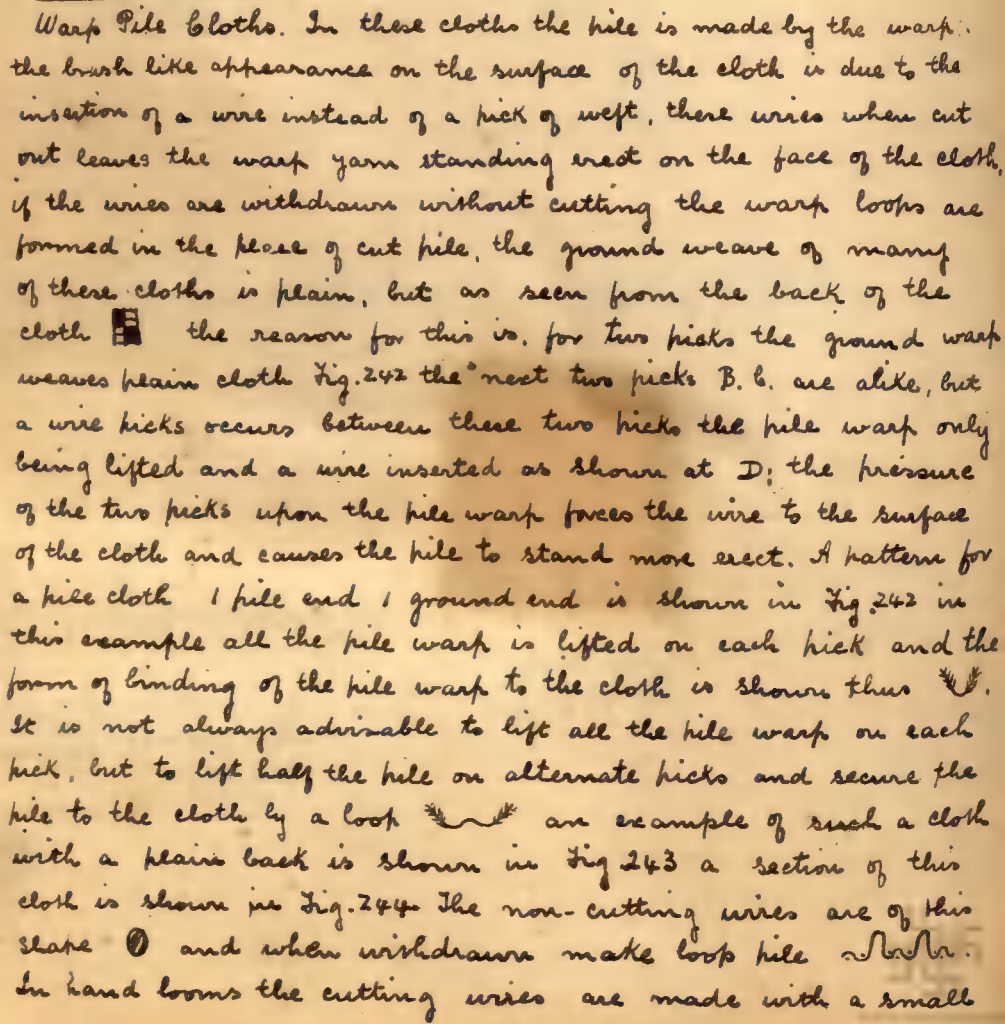 Warp Pile Cloths. In these cloths the pile is made by the warp.
the brush like appearance on the surface of the cloth is due to the
insertion of a wire instead of a pick of weft, these wires when cut
out leaves the warp yarn standing erect on the face of the cloth,
if the wires are withdrawn without cutting the warp loops are
formed in the place of cut pile, the ground weave of many
of these cloths is plain, but as seen from the back of the
cloth the reason for this is, for two picks the ground warp
weaves plain cloth Fig. 242 the next two picks B. C. are alike, but
a wire picks occurs between these two picks the pile warp only
being lifted and a wire inserted as shown at D; the pressure
of the two picks upon the pile warp forces the wire to the surface
of the cloth and causes the pile to stand more erect. A pattern for
a pile cloth 1 pile end 1 ground end is shown in Fig. 242 in
this example all the pile warp is lifted on each pick and the
form of binding of the pile warp to the cloth is shown thus
It is not always advisable to lift all the pile warp on each
pick, but to lift half the pile on alternate picks and secure the
pile to the cloth by a loop an example of such a cloth
with a plain back is shown in Fig 243 a section of this
cloth is shown in Fig. 244 The non-cutting wires are of this
shape and when withdrawn make loop pile
In hand looms the cutting wires are made with a small